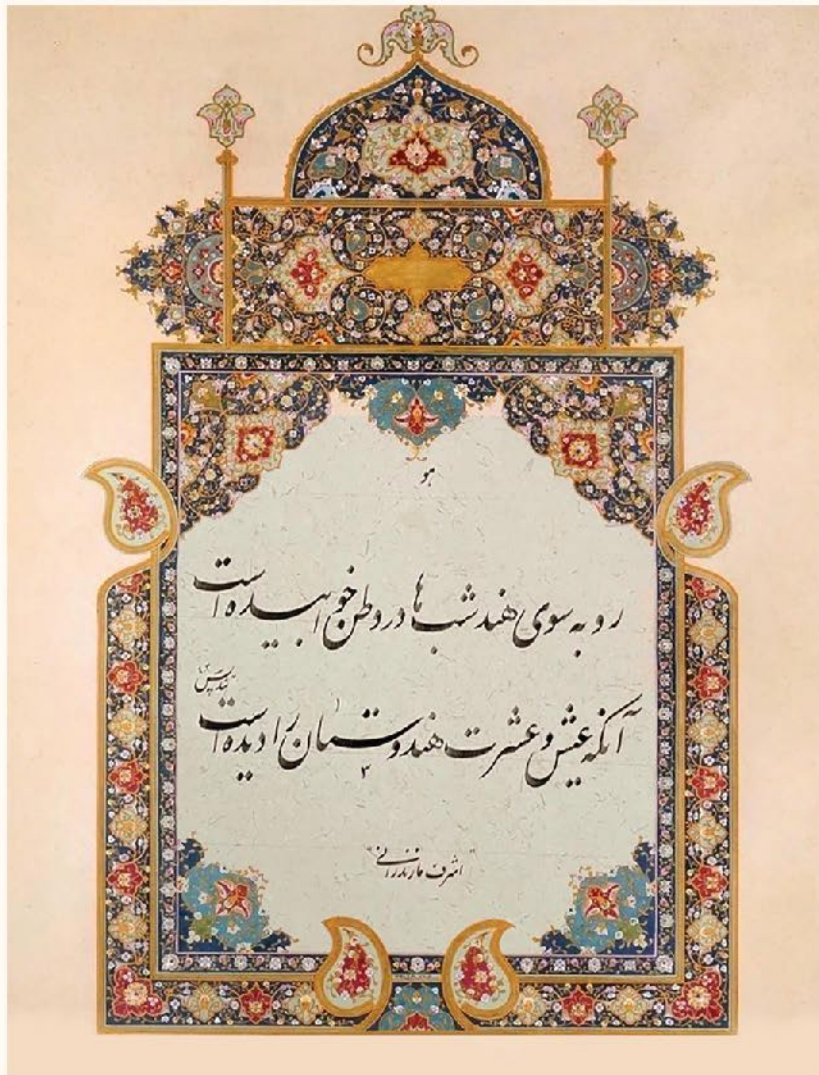 هو
رو به سوی هند شب‌ها در وطن خوابیده است
آنکه عیش و عشرت هندوستان را دیده است
"اشرف مازندرانی"